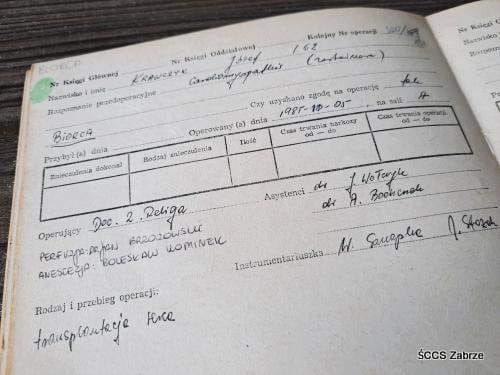 BIORCA
Nr Księgi Głównej Nr Księgi Oddziałowej Kolejny Nr operacji
Nazwisko i imię KRAWCZYK Józef l. 62
Rozpoznanie przedoperacyjne Cardiomyopathia
BIORCA Czy uzyskano zgodę na operację tak
Przybył (a) dnia Operowany (a) dnia 1985-11-05 na sali A
Znieczulenia dokonał Rodzaj znieczulenia Ilość Czas trwania narkozy od — do Czas trwania operacji od — do
Operujący Doc. Z. Religa Asystenci dr J. Wołczyk
dr A. Bochenek
PERFUZJA-DEJAN BRZOZOWSKI
ANESTEZJA BOLESŁAW KOMINEK
Instrumentariuszka
Rodzaj i przebieg operacji:
transplantacja serca
ŚCCS Zabrze